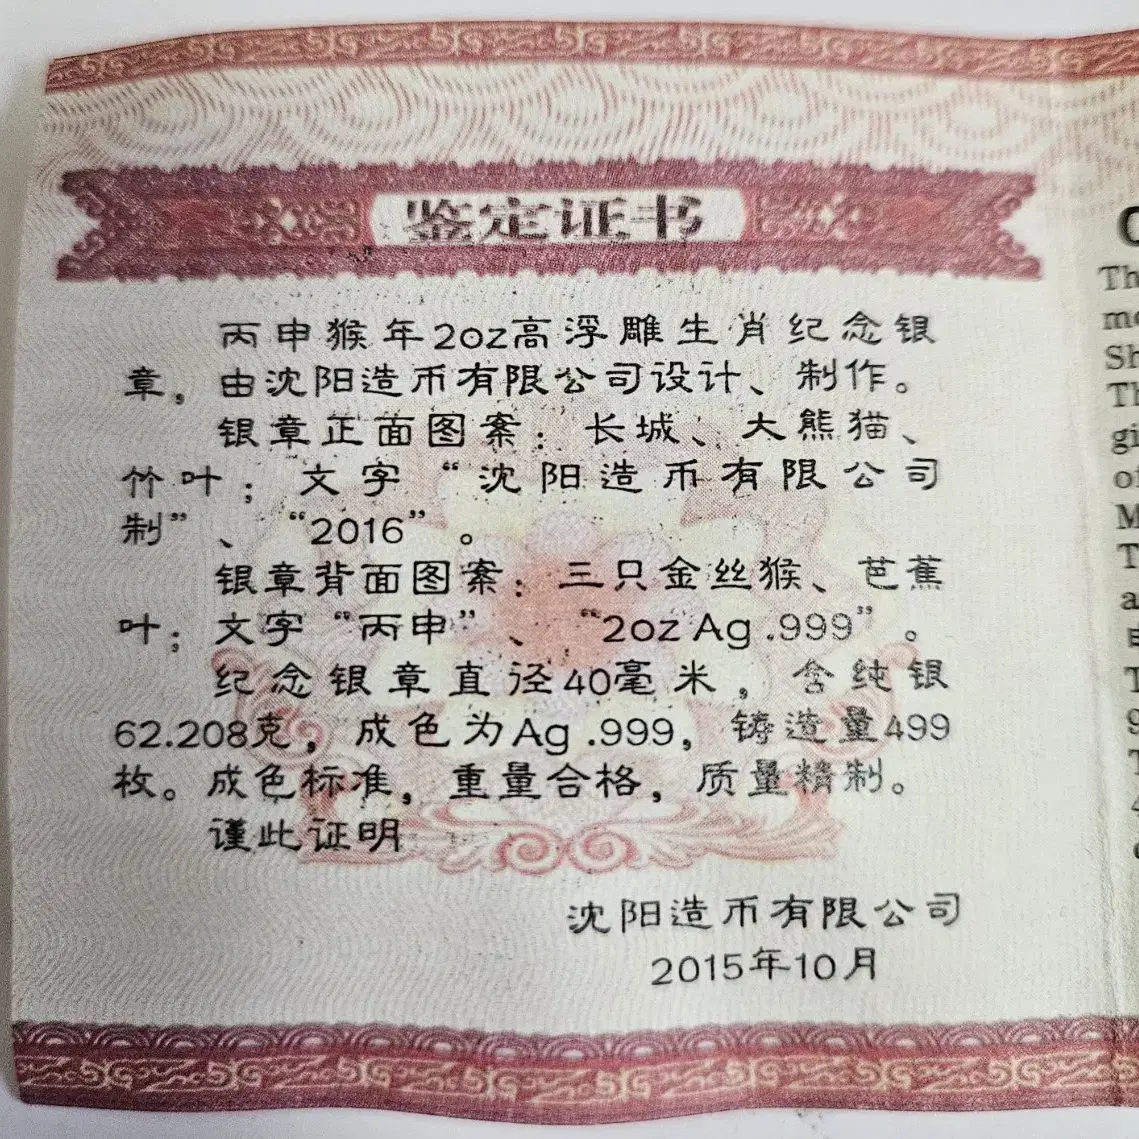 鉴定证书
丙申猴年2oz高浮雕生肖纪念银
章，由沈阳造币有限公司设计、制作。
银章正面图案：长城、大熊猫、
竹叶；文字“沈阳造币有限公司
制”、“2016”。
银章背面图案：三只金丝猴、芭蕉
叶；文字“丙申”、“2oz Ag .999”。
纪念银章直径40毫米，含纯银
62.208克，成色为Ag .999，铸造量499
枚。成色标准，重量合格，质量精制。
谨此证明
沈阳造币有限公司
2015年10月